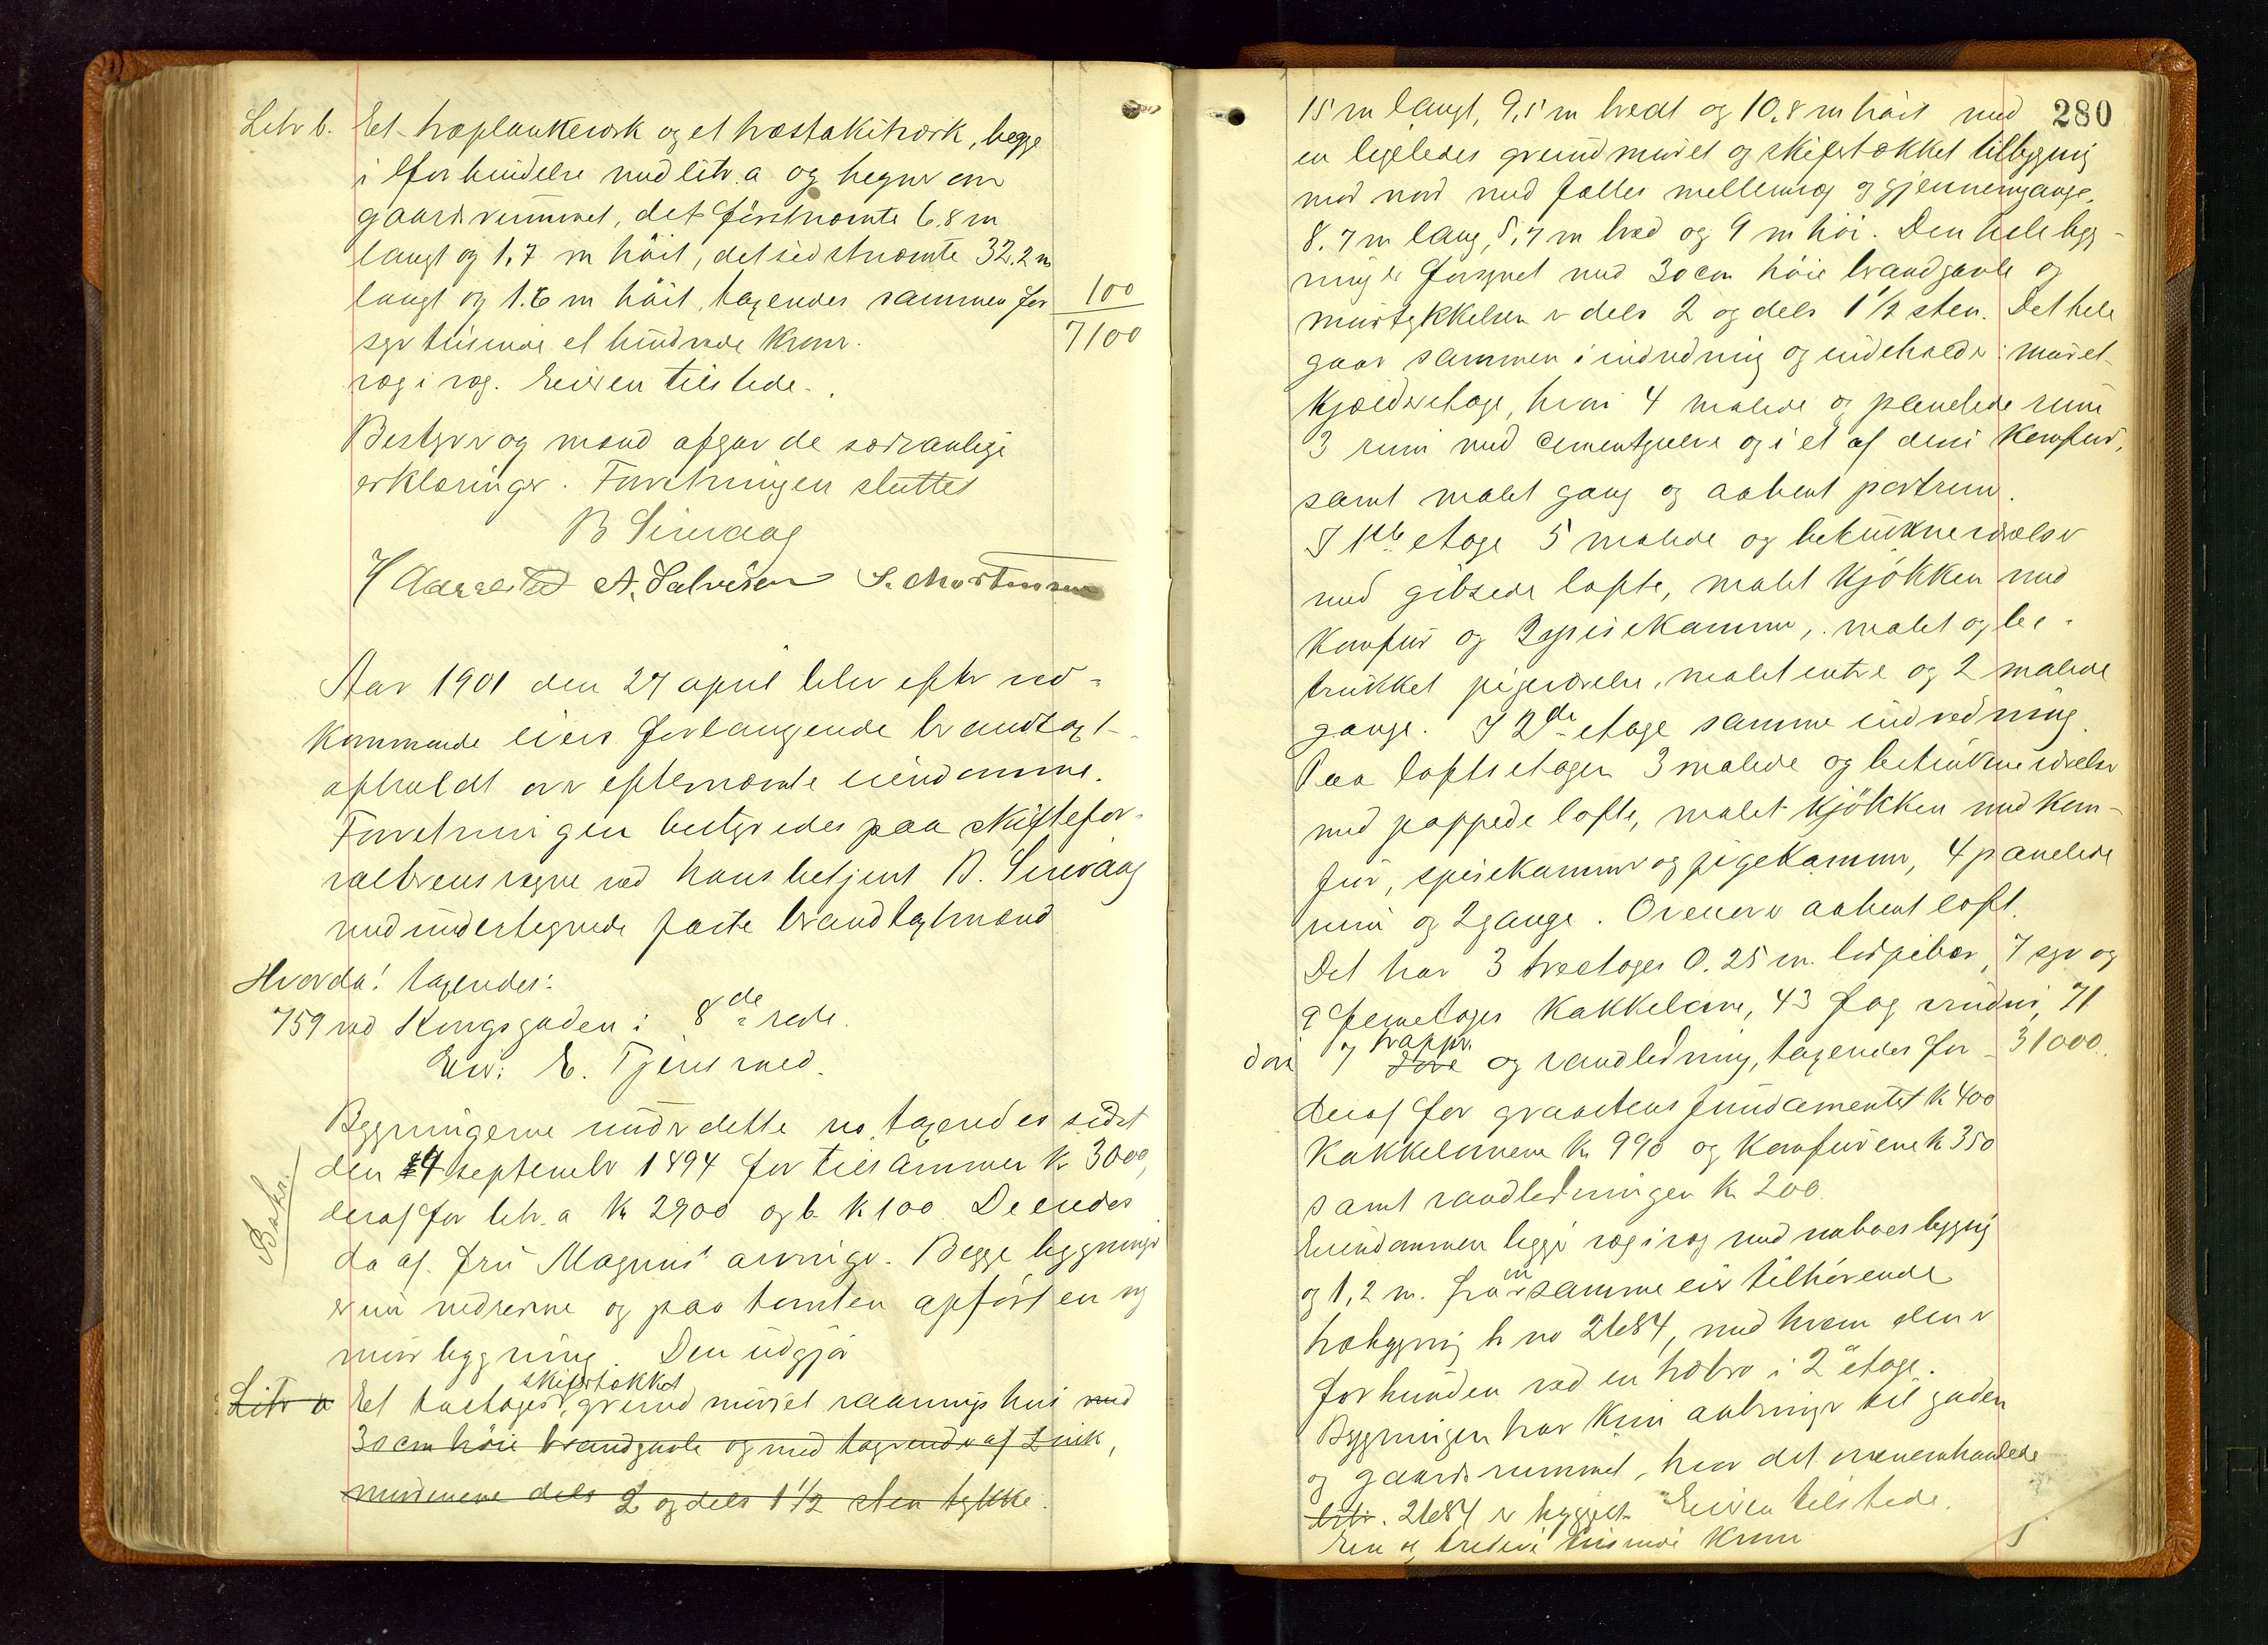 Litr b. Et træplankeværk og et træstakitværk, begge
i forbindelse med litr. a og hegner om
gaardsrummet, det förstnævnte 6,8 m
langt og 1,7 m höit, det sidstnævnte 32,2 m
langt og 1.6 m höit, taxeredes sammen for 100
7100
syv tusinde et hundrede Kroner.
væg i væg. Eieren tilstede.
Bestyrer og mænd afgav de sædvanlige
erklæringer. Forretningen sluttet
B Sinvaag
A. Salvesen S. Mortensen
Aar 1901 den 27 april blev efter ved-
kommende eiers forlangende brandtaxt
afholdt over efternævnte eiendomme.
Forretningen bestyredes paa skiftefor-
valterens vegne ved hans betjent B. Sinvaag
med undertegnede faste brandtaxtmænd
Hvorda! taxeredes:
759 ved Kongsgaden i 8de rode.
Eier: E. Tjensvold.
Bygningerne under dette no. taxeredes sidst
den 4 september 1894 for tilsammen kr 3000,
deraf for litr. a kr 2900 og b kr 100. De eiedes
da af fru Magnus' arvinger. Begge bygninger
er nu nedrevne og paa tomten opfört en ny
murbygning. Den udgjör
Litr a Et toetages, skifertækket grundmuret vaaningshus med
30 cm höie brandgavle og med tagrender af Zink,
murene dels 2 og dels 1 1/2 sten tykke.
280
15 m langt, 9,5 m bredt og 10,8 m höit med
en ligeledes grundmuret og skifertækket tilbygning
mod nord med fælles mellemvæg og gjennemgange,
8.7 m lang, 5,7 m bred og 9 m höi. Den hele byg-
ning er forsynet med 30 cm höie brandgavle og
murtykkelsen er dels 2 og dels 1 1/2 sten. Det hele
gaar sammen i indredning og indeholder: muret
Kjælderetage, hvori 4 malede og panelede rum
3 rum med cementgulve og i et af dem Komfur,
samt malet gang og aabent portrum.
I 1ste etage 5 malede og betrukne værelser
med gibsede lofte, malet Kjökken med
Komfur og 2 spisekammer, malet og be-
trukket pigeværelse, malet entre og 2 malede
gange. I 2de etage samme indredning.
Paa loftsetagen 3 malede og betrukne værelser
med pappede lofte, malet Kjökken med Kom-
fur, spisekammer og pigekammer, 4 panelede
rum og 2 gange. Ovenover aabent loft.
Det har 3 treetages 0.25 m. lyspiber, 7 syv og
9 femetages Kakkelovne, 43 fag vinduer, 71
döre 7 trapper. döre og vandledning, taxeredes for 31000.
deraf for graastensfundamentet kr 400
Kakkelovnene kr 990 og Komfurene kr 350
samt vandledningen kr 200.
Eiendommen ligger væg i væg med naboes bygning
og 1,2 m. fra en samme eier tilhörende
træbygning br no 2684, med hvem den er
forbunden ved en træbro i 2den etage.
Bygningen har Kun aabninger til gaden
og gaardsrummet, hvor det ovenomhandlede
litr. 2684 er bygget. Eieren tilstede.
Een og tredive tusinde Kroner